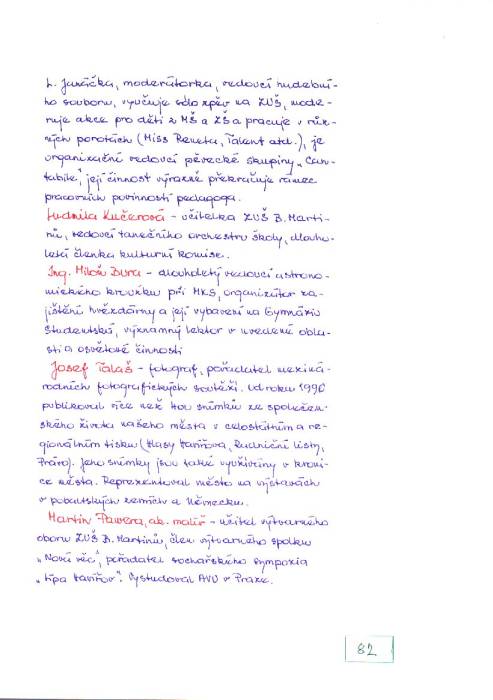 L. Janíčka, moderátorka, vedoucí hudební-
ho souboru, vyučuje sólo zpěv na ZUŠ, mode-
ruje akce pro děti z MŠ a ZŠ a pracuje v růz-
ných porotách (Miss Reneta, Talent atd.), je
organizační vedoucí pěvecké skupiny „Can-
tabile“, její činnost výrazně překračuje rámec
pracovních povinností pedagoga.
Ludmila Kučerová - učitelka ZUŠ B. Marti-
nů, vedoucí tanečního orchestru školy, dlouho-
letá členka kulturní komise.
Ing. Miloň Dura - dlouholetý vedoucí astrono-
mického kroužku při MKS, organizátor za-
jištění hvězdárny a její vybavení na Gymnáziu
Studentská, významný lektor v uvedené obla-
sti a osvětové činnosti
Josef Talaš - fotograf, pořadatel meziná-
rodních fotografických soutěží. Od roku 1990
publikoval více než 400 snímků ze společen-
ského života našeho města v celostátním a re-
gionálním tisku (Hlasy Havířova, Radniční listy,
Právo). Jeho snímky jsou také využívány v kroni-
ce města. Reprezentoval město na výstavách
v pobaltských zemích a Německu.
Martin Pawera, ak. malíř - učitel výtvarného
oboru ZUŠ B. Martinů, člen výtvarného spolku
„Nová věc“, pořadatel sochařského sympozia
„Lípa Havířov“. Vystudoval AVU v Praze.
82